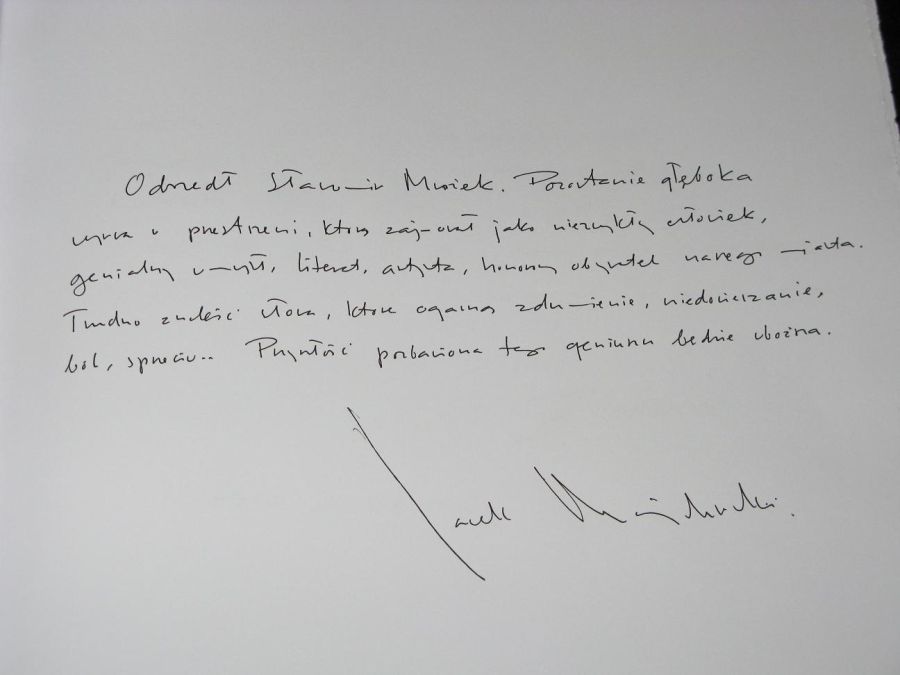 Odszedł Sławomir Mrożek. Pozostanie głęboka
wyrwa w przestrzeni, którą zajmował jako niezwykły człowiek,
genialny umysł, literat, artysta, honorowy obywatel naszego miasta.
Trudno znaleźć słowa, które ogarną zdumienie, niedowierzanie,
ból, sprzeciw.. Przyszłość pozbawiona tego geniuszu będzie uboższa.
Jacek Majchrowski